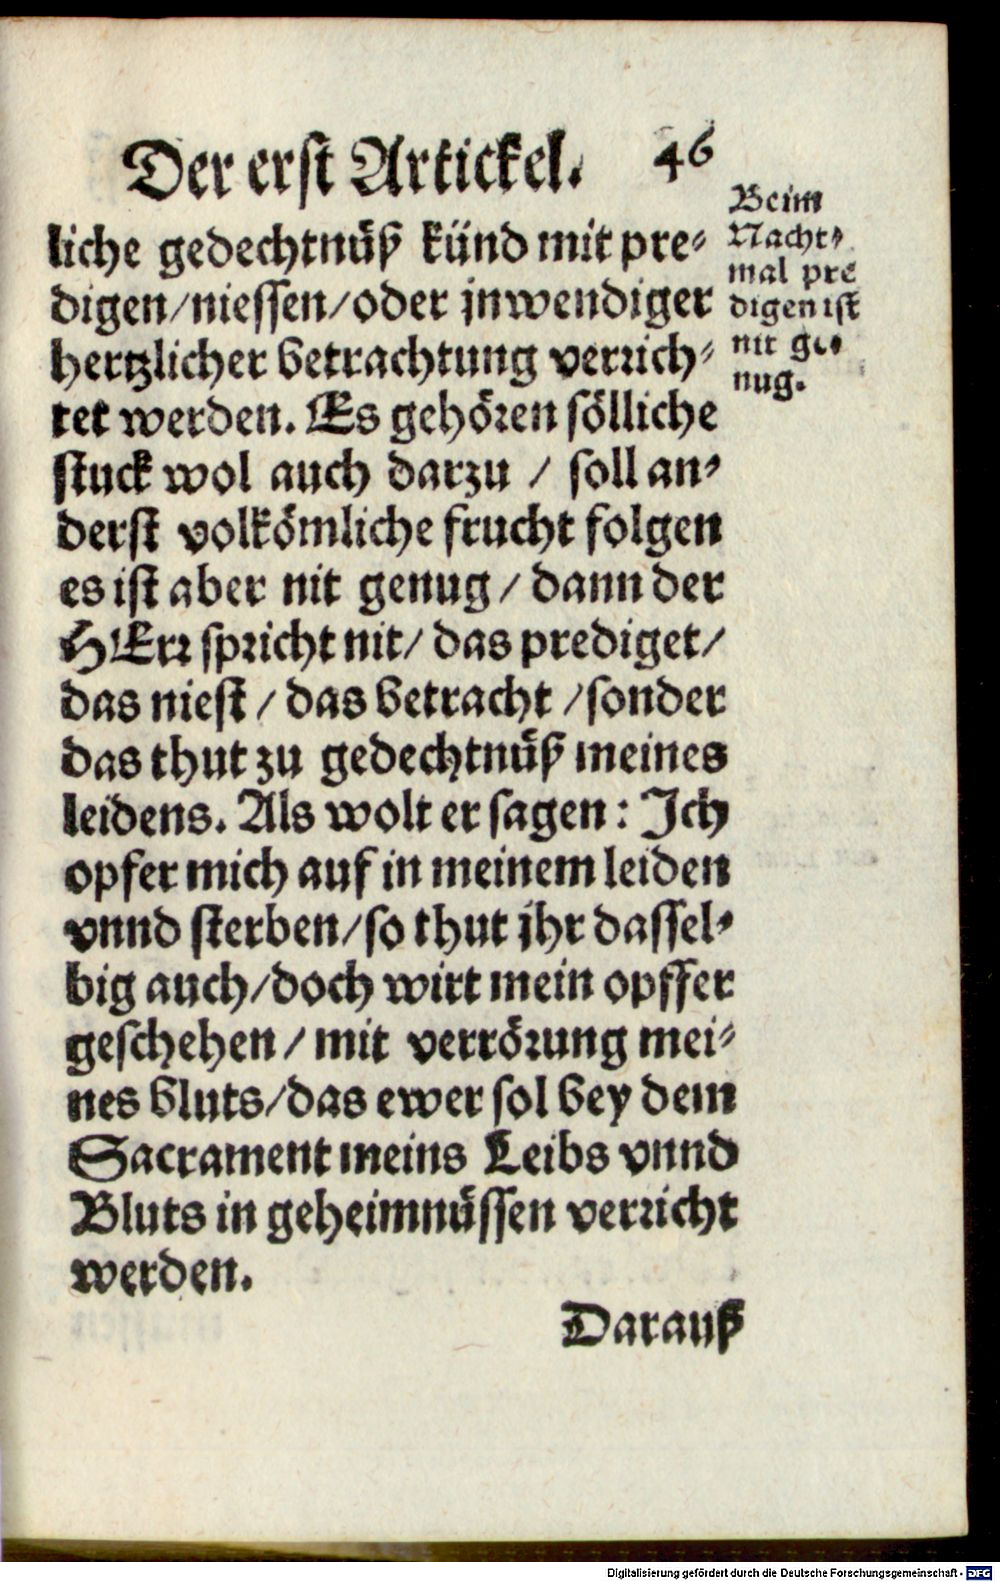 Der erst Artickel. 46
liche gedechtnüß künd mit pre-
digen/niessen/oder jnwendiger
hertzlicher betrachtung verrich-
tet werden. Es gehören sölliche
stuck wol auch darzu / soll an-
derst volkömliche frucht folgen
es ist aber nit genug / dann der
HErr spricht nit/ das prediget/
das niest / das betracht /sonder
das thut zu gedechtnüß meines
leidens. Als wolt er sagen: Jch
opfer mich auf in meinem leiden
vnnd sterben/so thut jhr dassel-
big auch/doch wirt mein opffer
geschehen / mit verrörung mei-
nes bluts/das ewer sol bey dem
Sacrament meins Leibs vnnd
Bluts in geheimnüssen verricht
werden.
Darauß
Beim
Nacht-
mal pre
digen ist
nit ge-
nug.
Digitalisierung gefördert durch die Deutsche Forschungsgemeinschaft - DFG